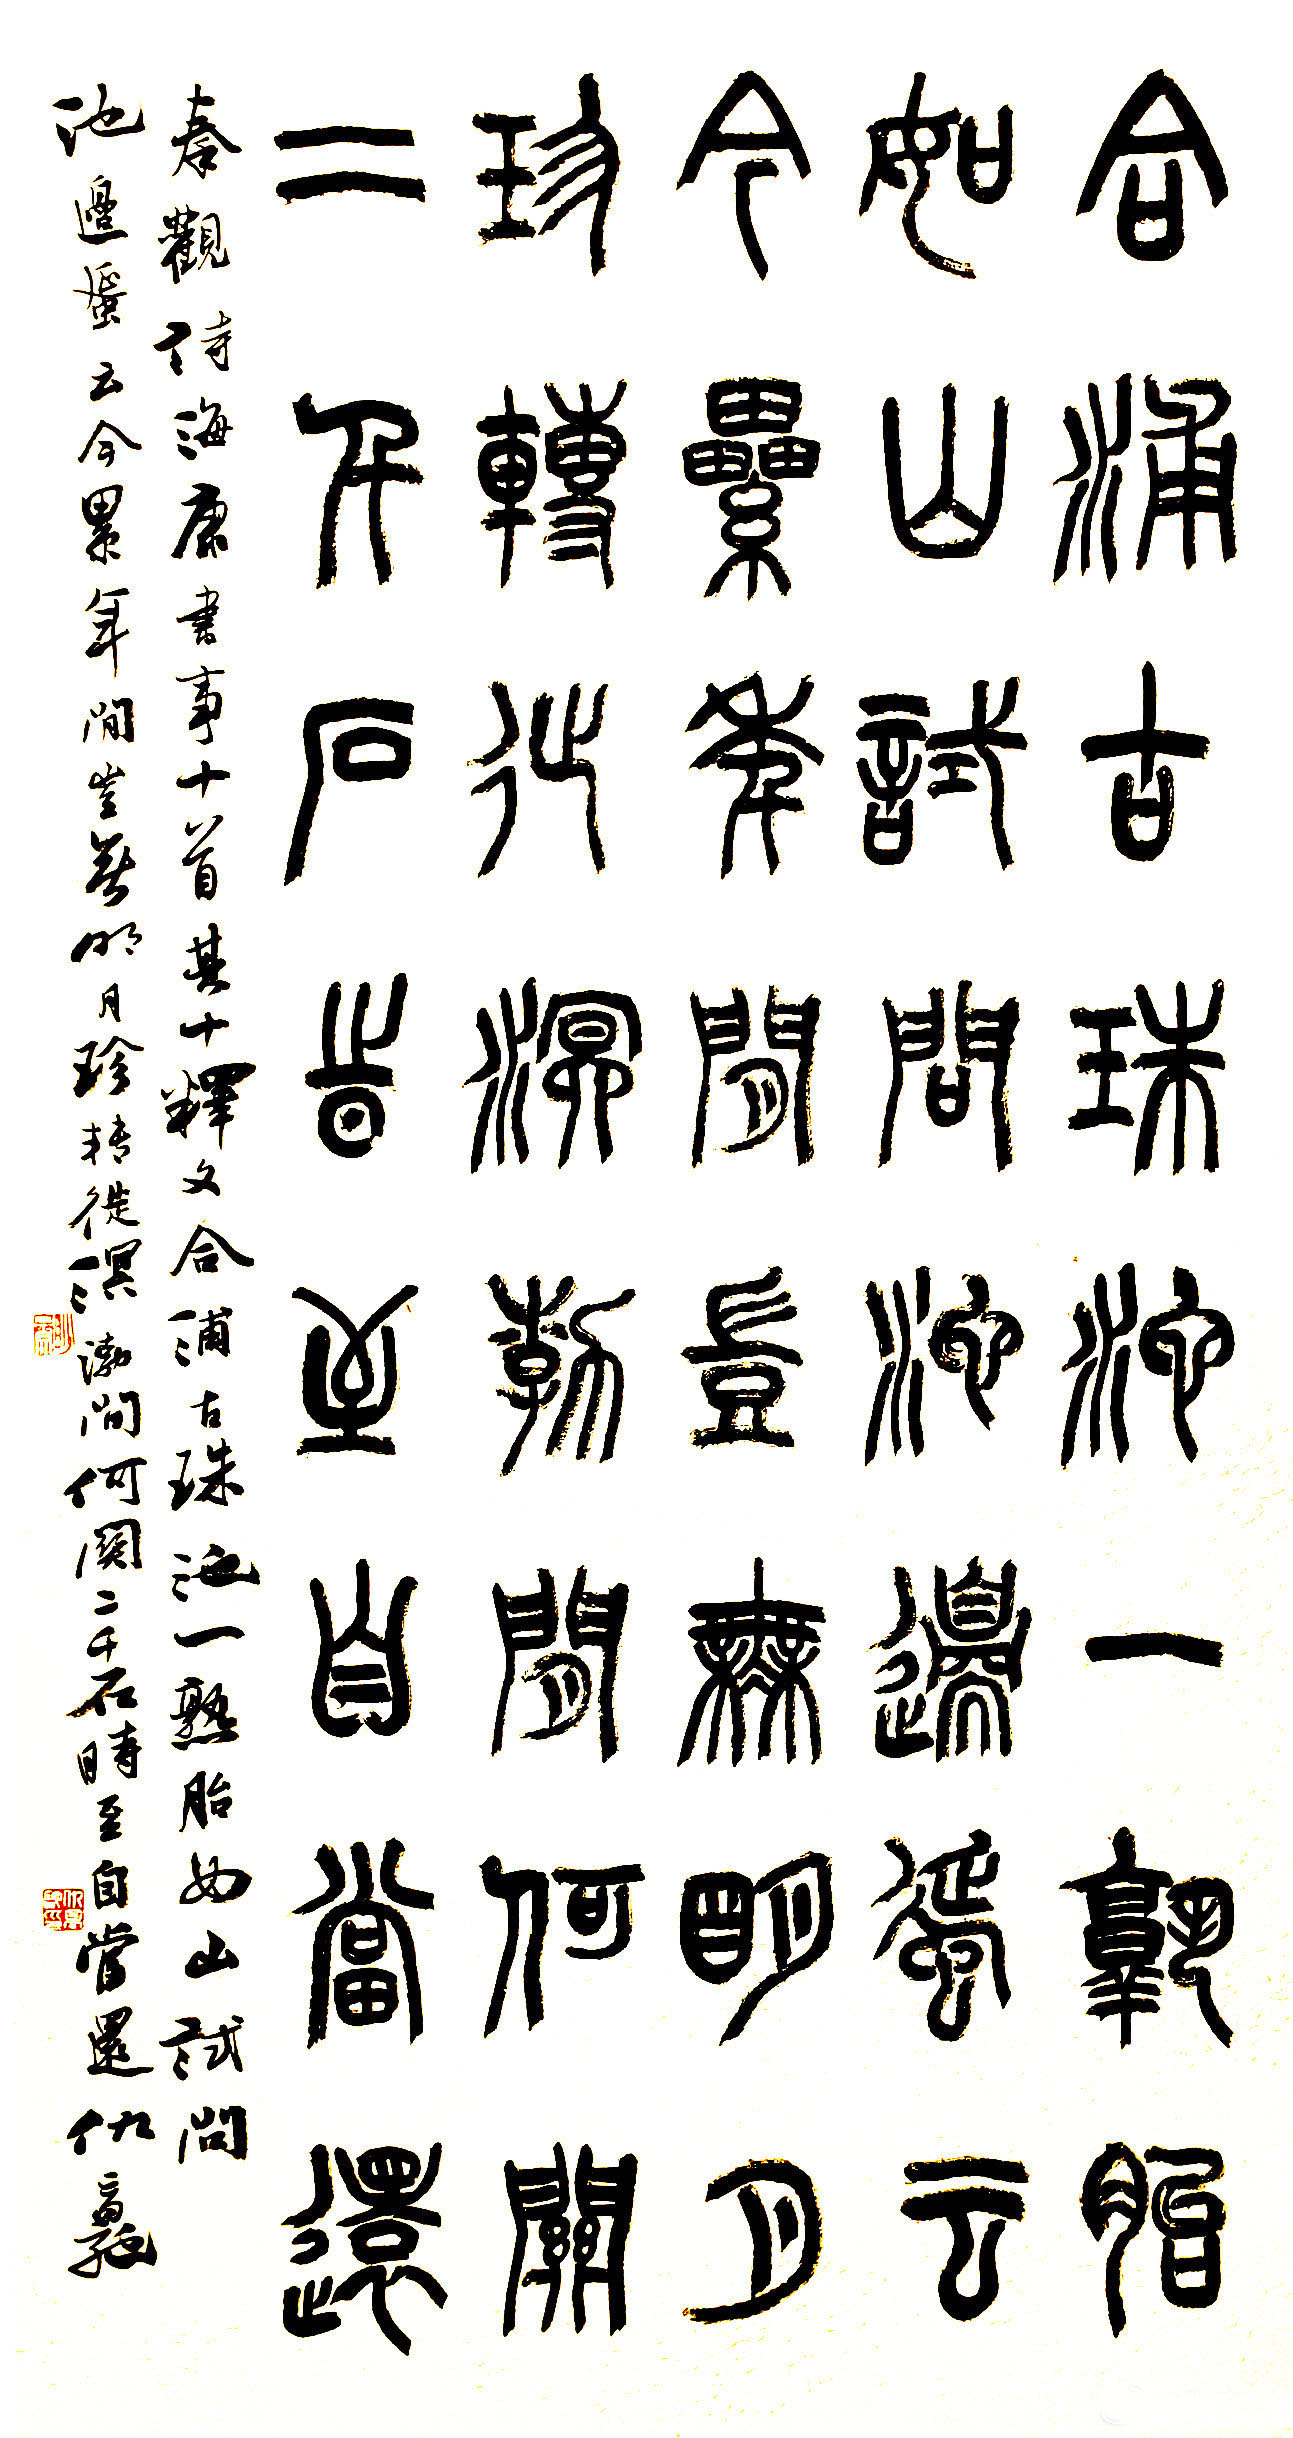 合浦古珠池一孰胎
如山試問池邊蜑云
今纍年閒豈無明月
珍轉徙溟勃閒何關
二千石時至自當還
秦觀詩海康書事十首其十釋文合浦古珠池一熟胎如山試問
池邊蜑云今累年間豈無明月珍轉徙溟渤間何關二千石時至自當還仇高